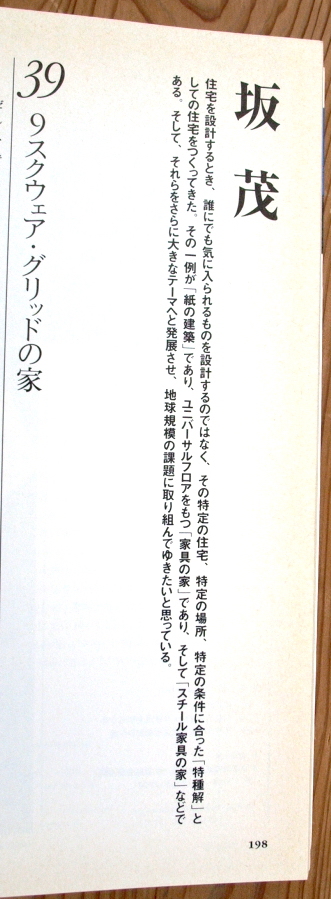 坂 茂
住宅を設計するとき、誰にでも気に入られるものを設計するのではなく、その特定の住宅、特定の場所、特定の条件に合った「特種解」と
しての住宅をつくってきた。その一例が「紙の建築」であり、ユニバーサルフロアをもつ「家具の家」であり、そして「スチール家具の家」などで
ある。そして、それらをさらに大きなテーマへと発展させ、地球規模の課題に取り組んでゆきたいと思っている。
39
9スクウェア・グリッドの家
198